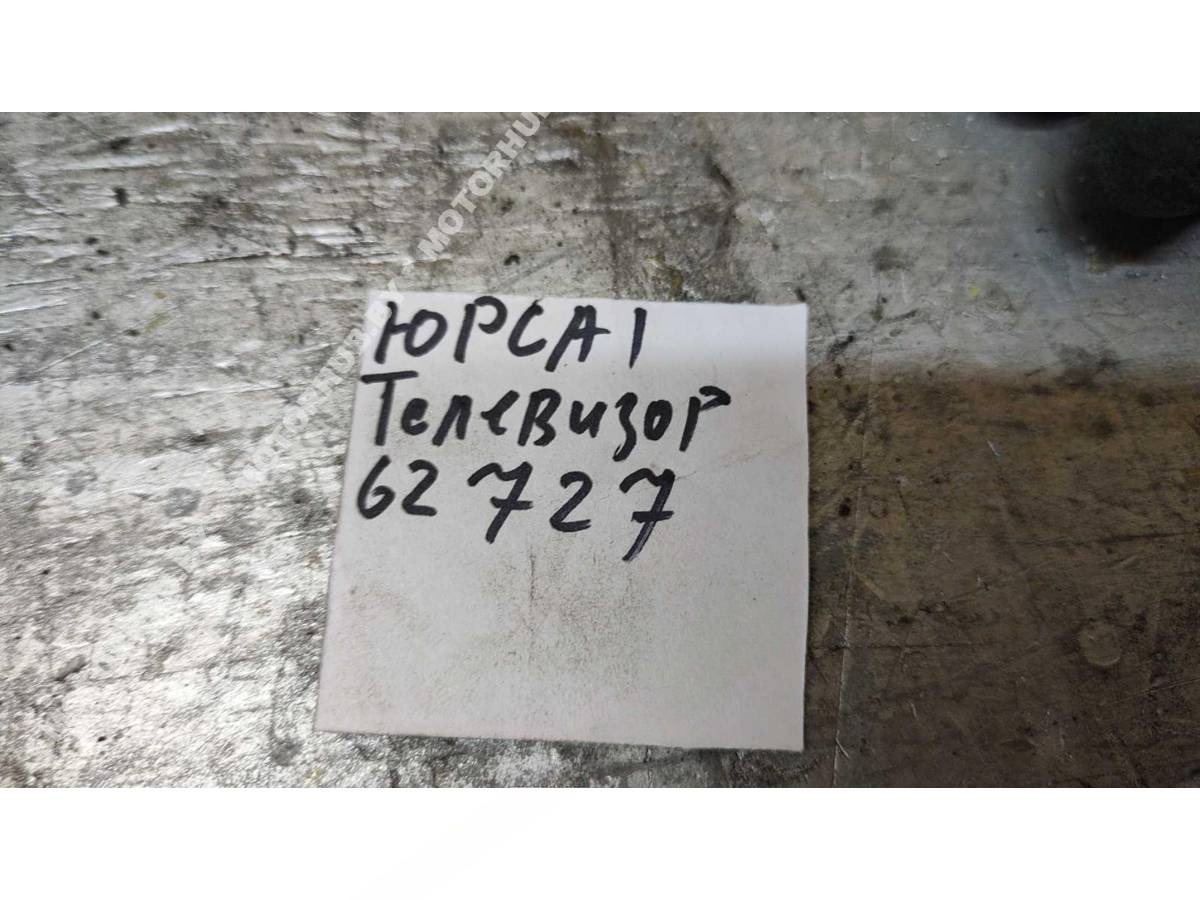 ЮРСА 1
Телевизор
62 727
MOTORHUB.BY MOTORHUB
MOTORHUB.BY